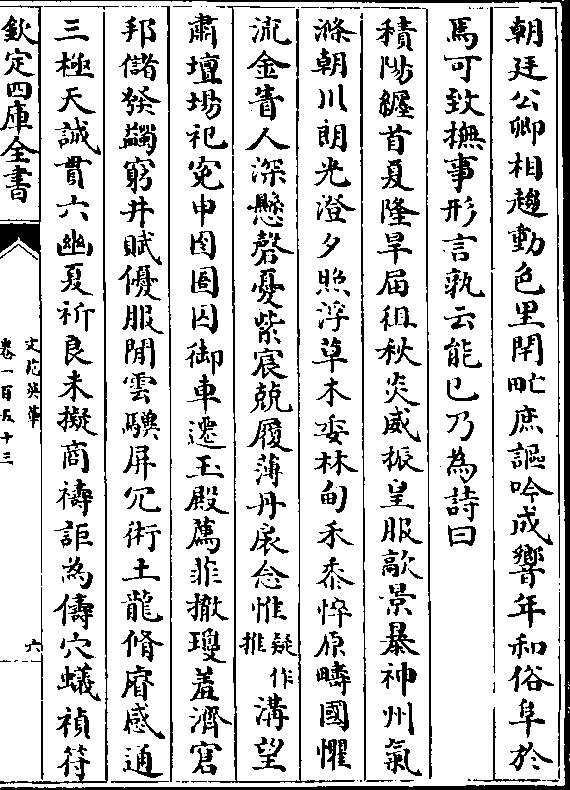 朝廷公卿相趨動色里閈甿庶謳吟成響年和俗阜於
焉可致撫事形言孰云能已乃為詩曰
積陽纒首夏隆旱屆徂秋炎威振皇服歊景暴神州氣
滌朝川朗光澄夕照浮草木委林甸禾黍悴原疇國懼
流金眚人深懸磬憂紫宸兢履薄丹扆念惟疑作推溝望
肅壇場祀寃申囹圄囚御車遷玉殿薦菲撤瓊羞濟窘
邦儲發蠲窮井賦優服閒雲驥屏冗術土龍脩睿感通
三極天誠貫六幽夏祈良未擬商禱詎為儔穴蟻禎符
欽定四庫全書
文苑英華
卷一百五十三
六